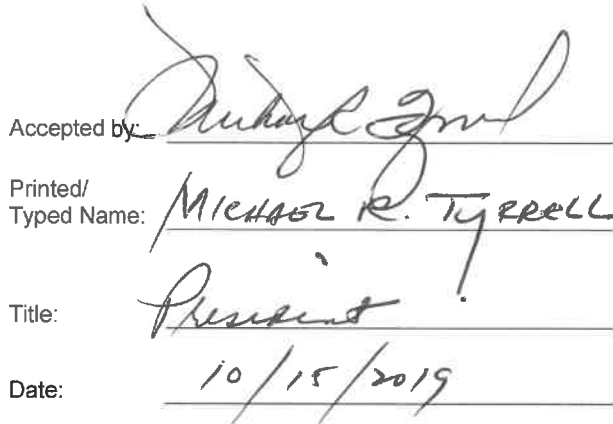 Accepted by:
Printed/
Typed Name: MICHAEL R. TYRRELL
Title: President
Date: 10/15/2019